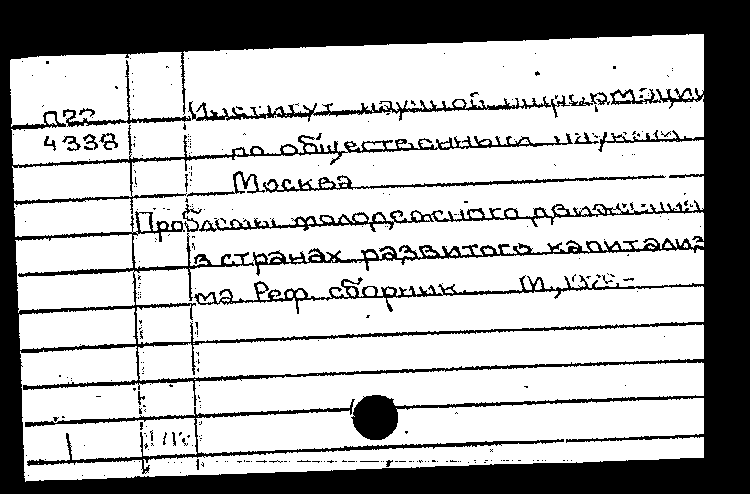 П22 Институт научной информации
4338 по общественным наукам.
Москва
Проблемы молодежного движения
в странах развитого капитализ
ма. Реф. сборник. М., 1976-